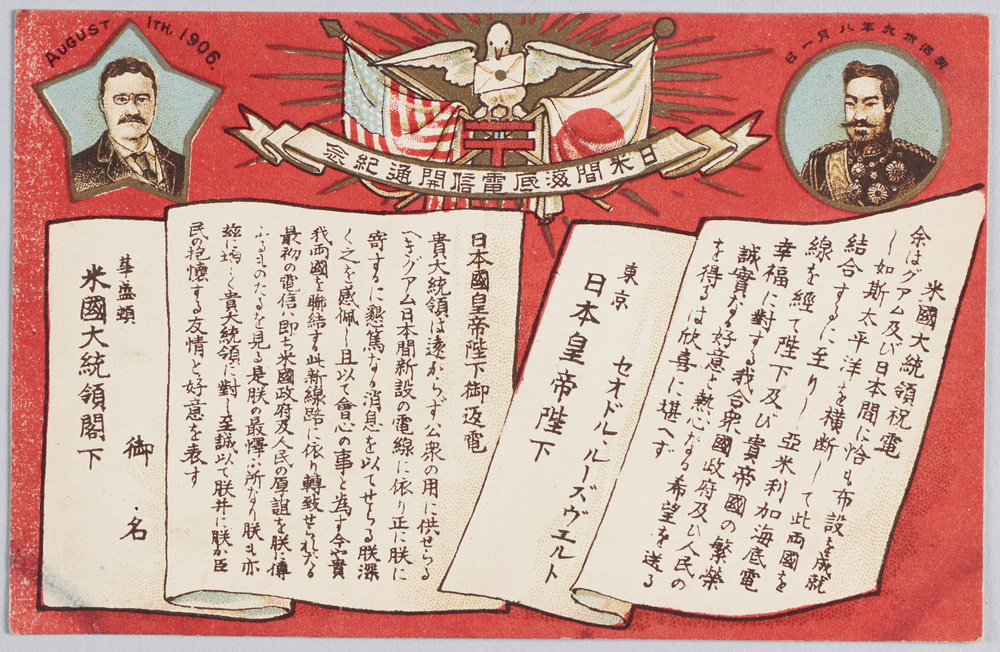 AUGUST 1TH, 1906.
明治卅九年八月一日
〒
日米間海底電信開通紀念
米國大統領祝電
余はグアム及び日本間に恰も布設を成就
し如斯太平洋を横断して此両國を
結合するに至りし亞米利加海底電
線を経て陛下及び貴帝國の繁榮
幸福に對する我合衆國政府及び人民の
誠實なる好意と熱心なる希望を送る
を得るは欣喜に堪へず
セオドル・ルーズヴエルト
東京
日本皇帝陛下
日本國皇帝陛下御返電
貴大統領は遠からず公衆の用に供せらる
べきグアム日本間新設の電線に依り正に朕に
寄するに懇篤なる消息を以てせらる朕深
く之を感佩し且以て會心の事と為す今や貴
我両國を聯結す此新線路に依り轉致せられたる
最初の電信は即ち米國政府及人民の厚誼を朕に傳
ふるものたるを見る是朕の最懌ふ所なり朕も亦
茲に均しく貴大統領に對し至誠以て朕并に朕が臣
民の抱懐する友情と好意を表す
御名
華盛頓
米國大統領閣下